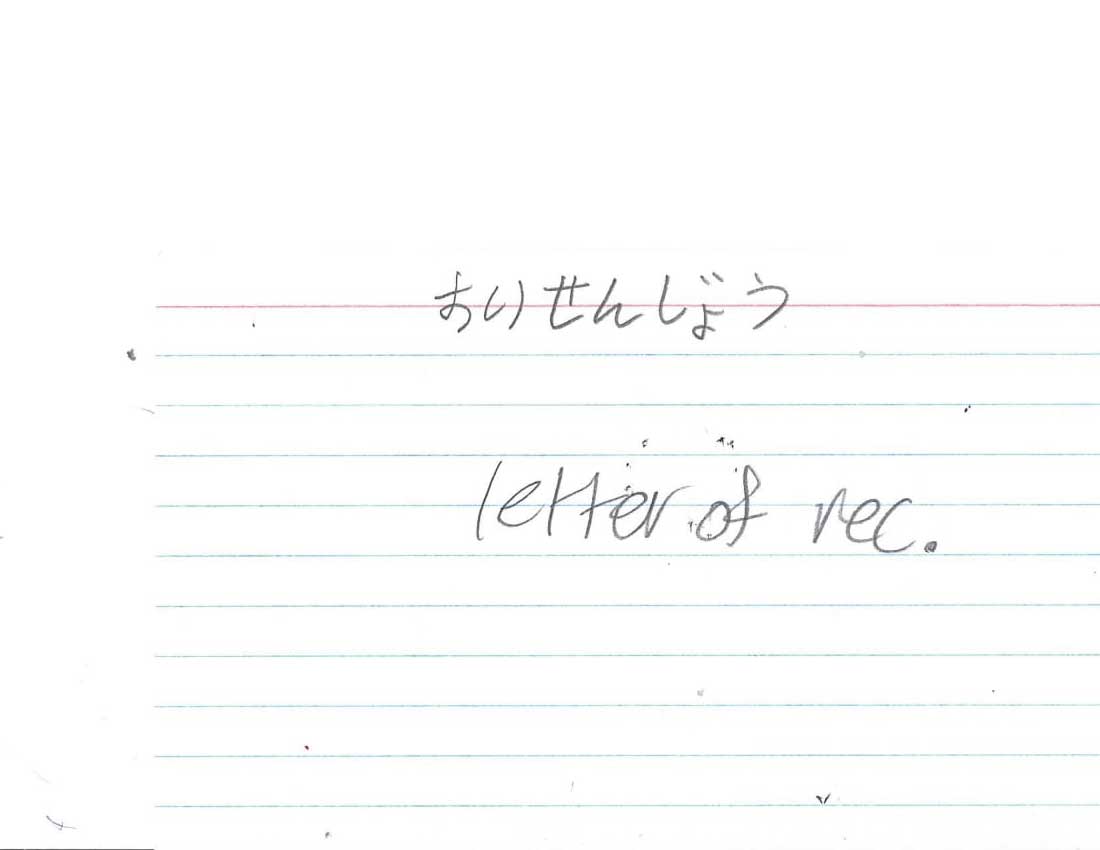 おいせんじょう
letter of rec.